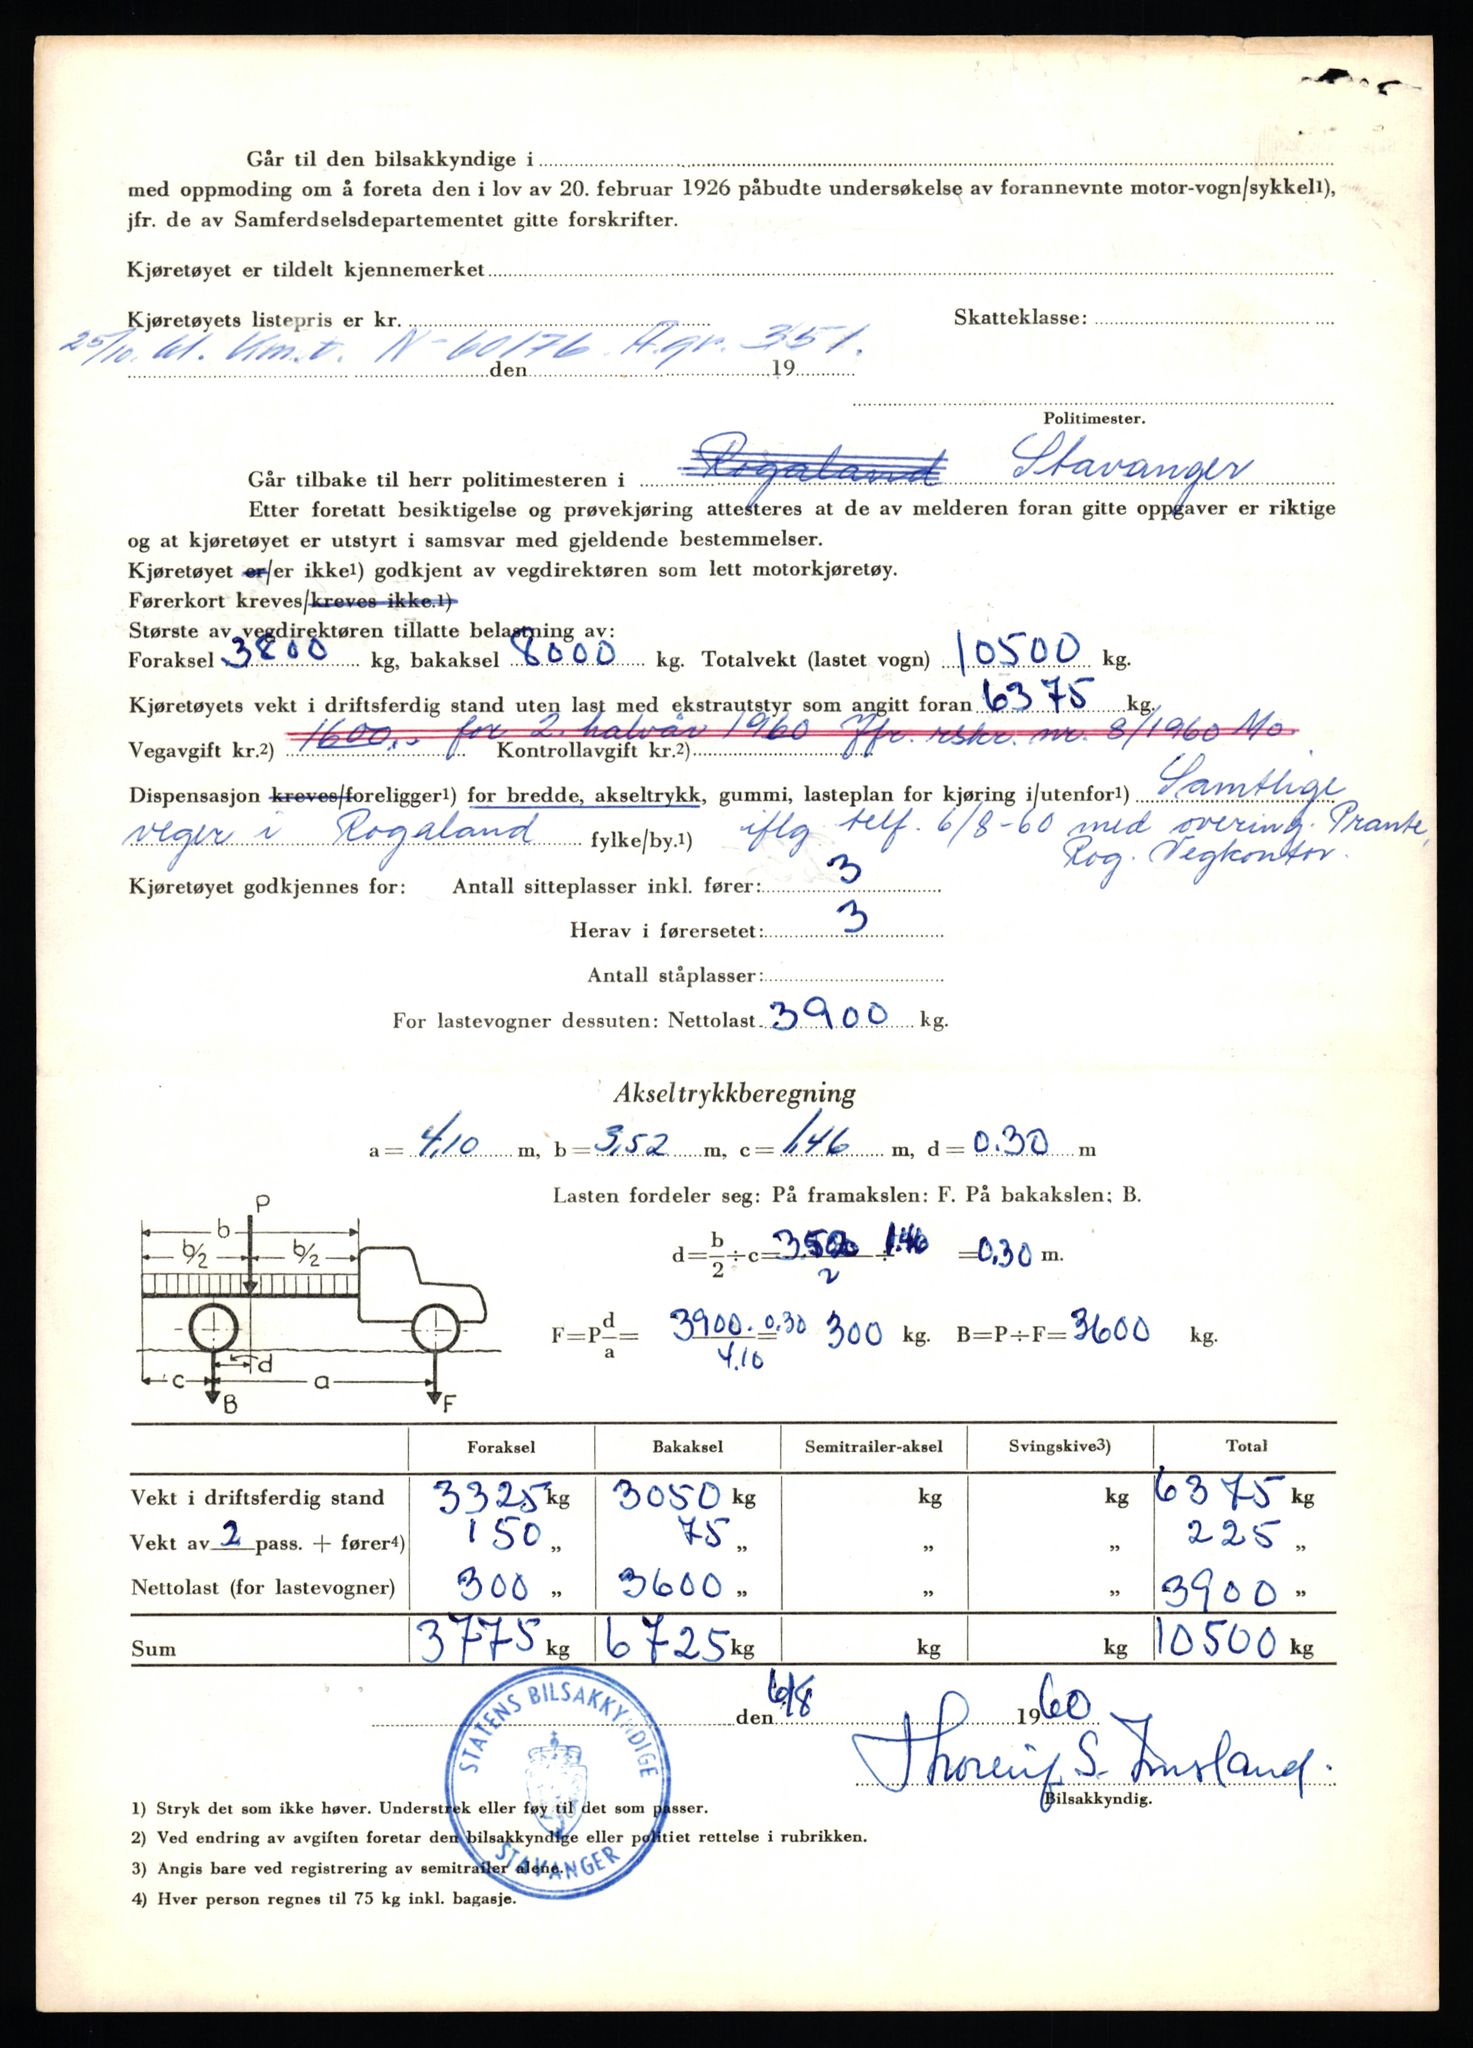 Går til den bilsakkyndige i
med oppmoding om å foreta den i lov av 20. februar 1926 påbudte undersøkelse av forannevnte motor-vogn/sykkel1),
jfr. de av Samferdselsdepartementet gitte forskrifter.
Kjøretøyet er tildelt kjennemerket
Kjøretøyets listepris er kr. Skatteklasse:
25/10. Utl. Km.t. N-60176. A.gr. 351.
den 19
Politimester.
Går tilbake til herr politimesteren i Rogaland Stavanger
Etter foretatt besiktigelse og prøvekjøring attesteres at de av melderen foran gitte oppgaver er riktige
og at kjøretøyet er utstyrt i samsvar med gjeldende bestemmelser.
Kjøretøyet er/er ikke1) godkjent av vegdirektøren som lett motorkjøretøy.
Førerkort kreves/kreves ikke.1)
Største av vegdirektøren tillatte belastning av:
Foraksel 3800 kg, bakaksel 8000 kg. Totalvekt (lastet vogn) 10500 kg.
Kjøretøyets vekt i driftsferdig stand uten last med ekstrautstyr som angitt foran 6375 kg.
Vegavgift kr.2) 1600,- for 2. halvår 1960 Jfr. rskr. nr. 8/1960 Mo
Kontrollavgift kr.2)
Dispensasjon kreves/foreligger1) for bredde, akseltrykk, gummi, lasteplan for kjøring i/utenfor1) Samtlige
veger i Rogaland fylke/by.1) iflg telf. 6/8-60 med overing. Prante,
Rog. Vegkontor.
Kjøretøyet godkjennes for: Antall sitteplasser inkl. fører: 3
Herav i førersetet: 3
Antall ståplasser:
For lastevogner dessuten: Nettolast 3900 kg.
Akseltrykkberegning
a = 4,10 m, b = 3,52 m, c = 1,46 m, d = 0.30 m
Lasten fordeler seg: På framakslen: F. På bakakslen: B.
d = b/2 ÷ c = 3.520/2 ÷ 1.46 = 0,30 m.
F = P d/a = 3900 . 0,30 / 4.10 = 300 kg. B = P ÷ F = 3600 kg.
P
b
b/2 b/2
d
c a
B F
Foraksel Bakaksel Semitrailer-aksel Svingskive3) Total
Vekt i driftsferdig stand 3325 kg 3050 kg kg kg 6375 kg
Vekt av 2 pass. + fører4) 150 „ 75 „ „ „ 225 „
Nettolast (for lastevogner) 300 „ 3600 „ „ „ 3900 „
Sum 3775 kg 6725 kg kg kg 10500 kg
den 6/8 1960
Bilsakkyndig.
STATENS BILSAKKYNDIGE
STAVANGER
1) Stryk det som ikke høver. Understrek eller føy til det som passer.
2) Ved endring av avgiften foretar den bilsakkyndige eller politiet rettelse i rubrikken.
3) Angis bare ved registrering av semitrailer alene.
4) Hver person regnes til 75 kg inkl. bagasje.